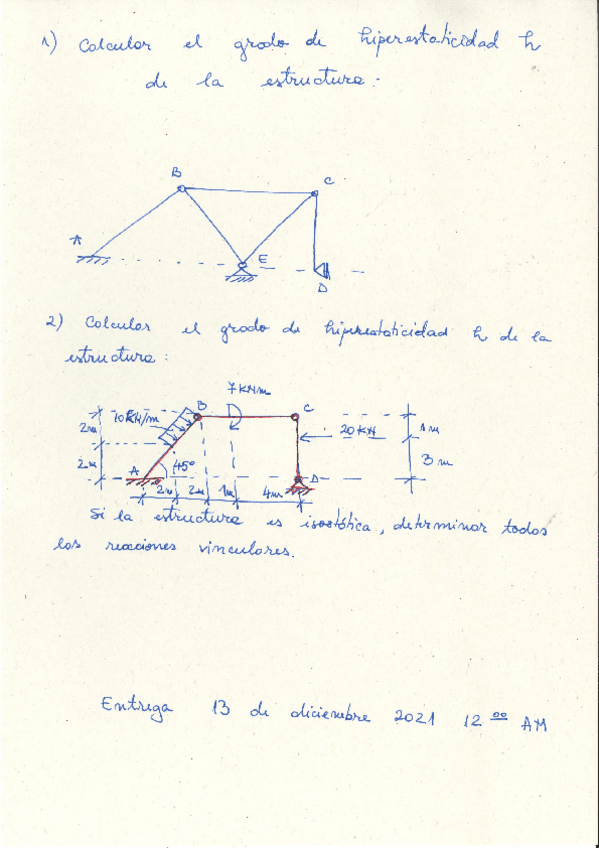 1) Calcular el grado de hiperestaticidad h
de la estructura:
B
C
A
E
D
2) Calcular el grado de hiperestaticidad h de la
estructura:
7 KNm
10 KN/m
B
C
2m
20 KN
1m
2m
A
45°
D
3m
2m 2m 1m 4m
Si la estructura es isostática, determinar todas
las reacciones vinculares.
Entrega 13 de diciembre 2021 12 00 AM